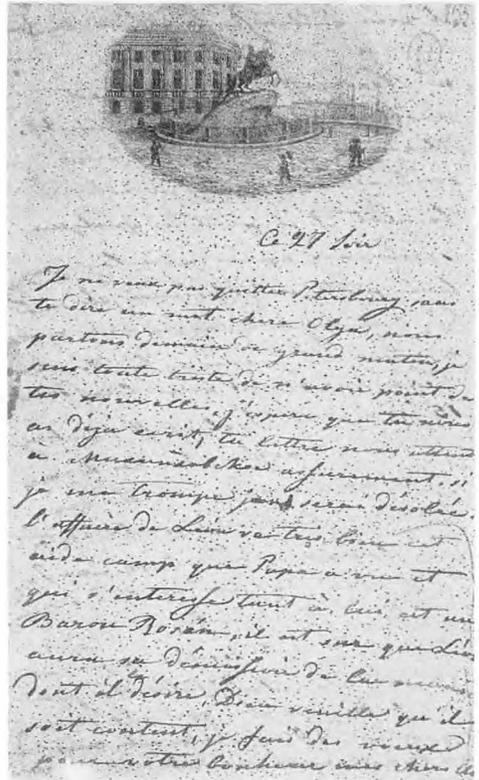 Ce 27 Soir
Je ne veux pas quitter Petersbourg sans
te dire un mot, chere Olga, nous
partons demain de grand matin, je
suis toute triste de n'avoir point de
tes nouvelles, j'espere que tu nous
as déja ecrit, ta lettre nous attend
a assurement, si
je me trompe j'en serai désolée.
l'affaire de Léon va tres bien cet
aide camp que Papa a vu et
qui s'interesse tant à lui, est un
Baron Rosén, il est sur que Léon
aura sa démission de la maniere
dont il la désire, Dieu veuille qu'il
soit content, je fais des voeux
pour votre bonheur mes chers